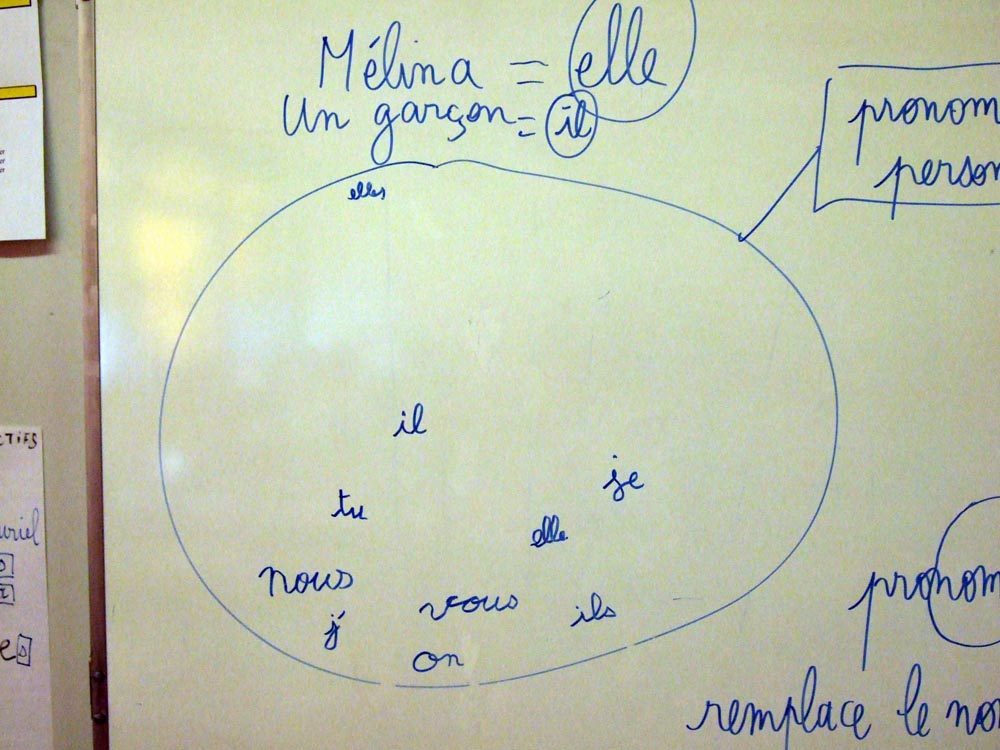 Mélina = elle
Un garçon = il
pronom
person
elles
il
je
tu
elle
nous
vous
ils
j'
on
pronom
remplace le no